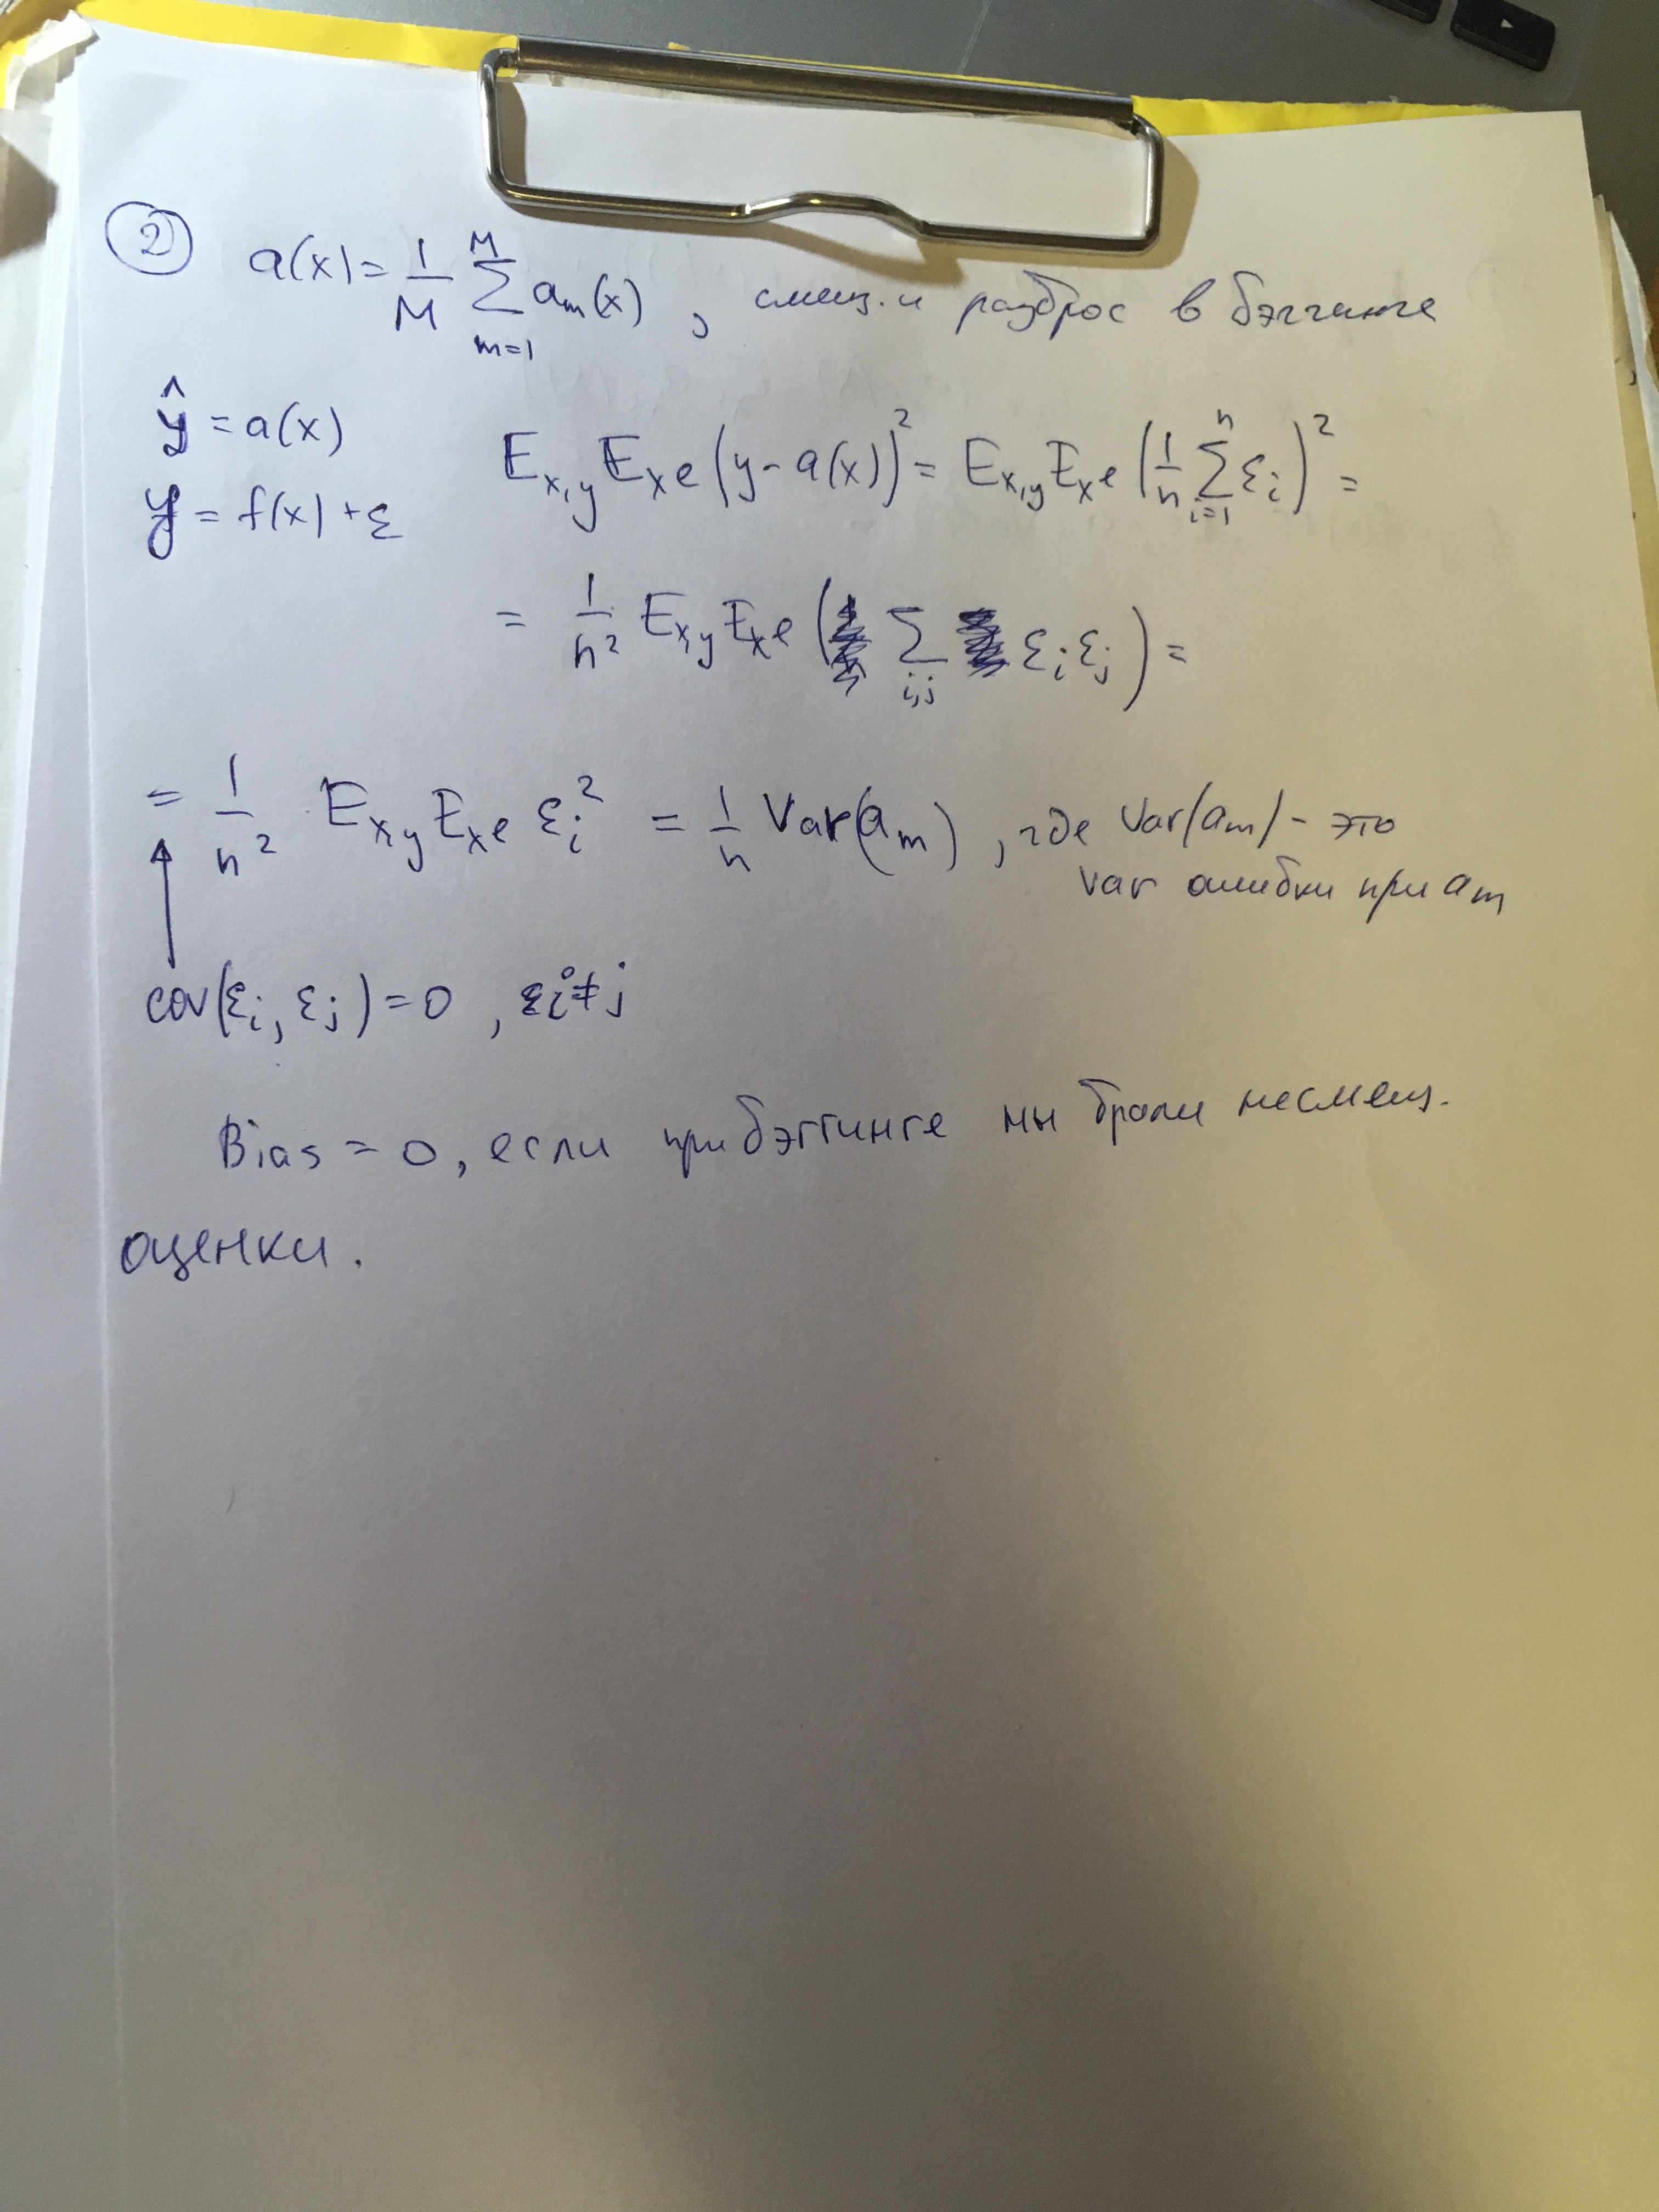 ② a(x) = 1/M Σ_{m=1}^{M} a_m(x), смещ. и разброс в бэггинге
ŷ = a(x)
E_{x,y} E_{x^ℓ} (y - a(x))² = E_{x,y} E_{x^ℓ} (1/n Σ_{i=1}^{n} ε_i)² =
y = f(x) + ε
= 1/n² E_{x,y} E_{x^ℓ} (Σ_{i,j} ε_i ε_j) =
= 1/n² E_{x,y} E_{x^ℓ} ε_i² = 1/n Var(a_m), где Var(a_m) - это
var ошибки при a_m
cov(ε_i, ε_j) = 0, i ≠ j
Bias = 0, если при бэггинге мы брали несмещ.
оценки.